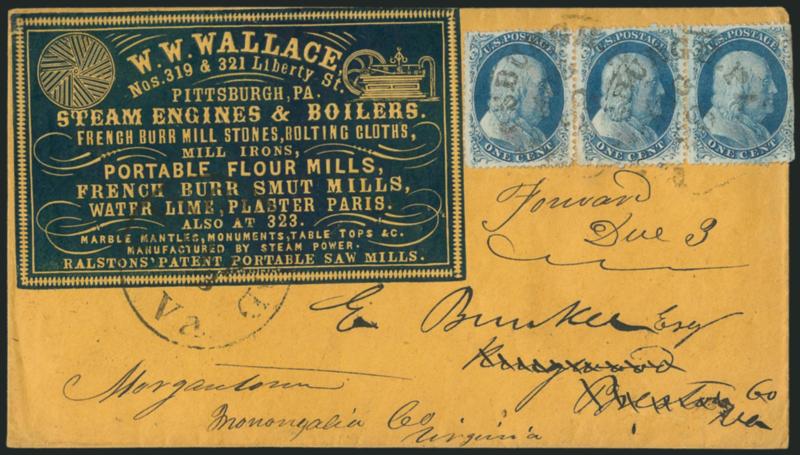 W. W. WALLACE
Nos. 319 & 321 Liberty St.
PITTSBURGH, PA.
STEAM ENGINES & BOILERS.
FRENCH BURR MILL STONES, BOLTING CLOTHS,
MILL IRONS,
PORTABLE FLOUR MILLS,
FRENCH BURR SMUT MILLS,
WATER LIME, PLASTER PARIS.
ALSO AT 323.
MARBLE MANTLES, MONUMENTS, TABLE TOPS &C.
MANUFACTURED BY STEAM POWER.
RALSTONS' PATENT PORTABLE SAW MILLS.
U.S. POSTAGE
ONE CENT
U.S. POSTAGE
ONE CENT
U.S. POSTAGE
ONE CENT
Forward
Due 3
VA
E Bunker Esq
Kingwood
Preston Co
Va
Morgantown
Monongalia Co
Virginia